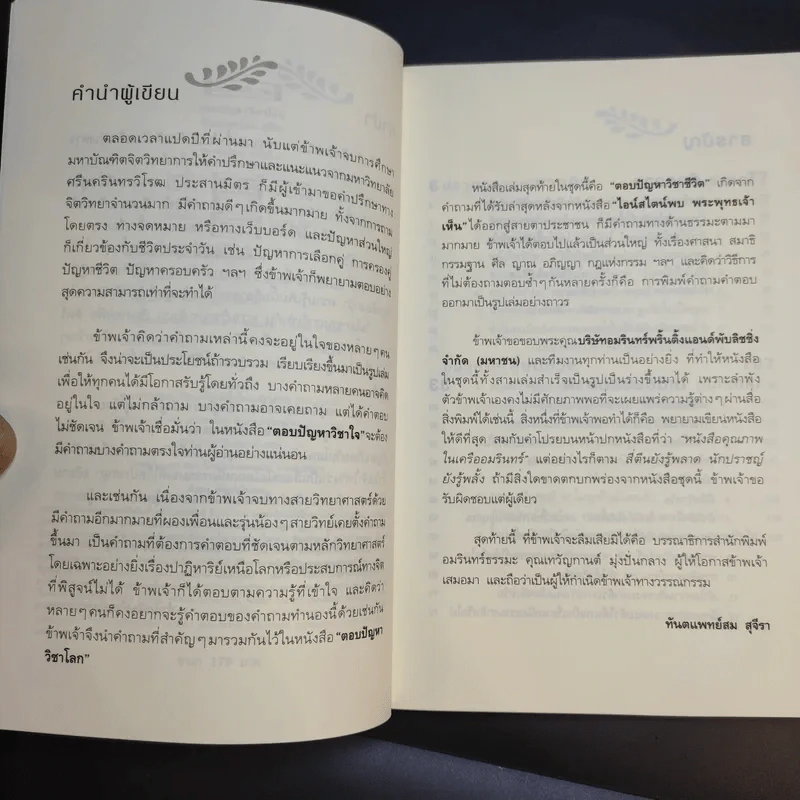 คำนำผู้เขียน
ตลอดเวลาแปดปีที่ผ่านมา นับแต่ข้าพเจ้าจบการศึกษา
มหาบัณฑิตจิตวิทยาการให้คำปรึกษาและแนะแนวจากมหาวิทยาลัย
ศรีนครินทรวิโรฒ ประสานมิตร ก็มีผู้เข้ามาขอคำปรึกษาทาง
จิตวิทยาจำนวนมาก มีคำถามดีๆเกิดขึ้นมากมาย ทั้งจากการถาม
โดยตรง ทางจดหมาย หรือทางเว็บบอร์ด และปัญหาส่วนใหญ่
ก็เกี่ยวข้องกับชีวิตประจำวัน เช่น ปัญหาการเลือกคู่ การครองคู่
ปัญหาชีวิต ปัญหาครอบครัว ฯลฯ ซึ่งข้าพเจ้าก็พยายามตอบอย่าง
สุดความสามารถเท่าที่จะทำได้
ข้าพเจ้าคิดว่าคำถามเหล่านี้คงจะอยู่ในใจของหลายๆคน
เช่นกัน จึงน่าจะเป็นประโยชน์ถ้ารวบรวม เรียบเรียงขึ้นมาเป็นรูปเล่ม
เพื่อให้ทุกคนได้มีโอกาสรับรู้โดยทั่วถึง บางคำถามหลายคนอาจคิด
อยู่ในใจ แต่ไม่กล้าถาม บางคำถามอาจเคยถาม แต่ได้คำตอบ
ไม่ชัดเจน ข้าพเจ้าเชื่อมั่นว่า ในหนังสือ "ตอบปัญหาวิชาใจ" จะต้อง
มีคำถามบางคำถามตรงใจท่านผู้อ่านอย่างแน่นอน
และเช่นกัน เนื่องจากข้าพเจ้าจบทางสายวิทยาศาสตร์ด้วย
มีคำถามอีกมากมายที่ผองเพื่อนและรุ่นน้องๆสายวิทย์เคยตั้งคำถาม
ขึ้นมา เป็นคำถามที่ต้องการคำตอบที่ชัดเจนตามหลักวิทยาศาสตร์
โดยเฉพาะอย่างยิ่งเรื่องปาฏิหาริย์เหนือโลกหรือประสบการณ์ทางจิต
ที่พิสูจน์ไม่ได้ ข้าพเจ้าก็ได้ตอบตามความรู้ที่เข้าใจ และคิดว่า
หลายๆคนก็คงอยากจะรู้คำตอบของคำถามทำนองนี้ด้วยเช่นกัน
ข้าพเจ้าจึงนำคำถามที่สำคัญๆมารวมกันไว้ในหนังสือ "ตอบปัญหา
วิชาโลก"
หนังสือเล่มสุดท้ายในชุดนี้คือ "ตอบปัญหาวิชาชีวิต" เกิดจาก
คำถามที่ได้รับล่าสุดหลังจากหนังสือ "ไอน์สไตน์พบ พระพุทธเจ้า
เห็น" ได้ออกสู่สายตาประชาชน ก็มีคำถามทางด้านธรรมะตามมา
มากมาย ข้าพเจ้าได้ตอบไปแล้วเป็นส่วนใหญ่ ทั้งเรื่องศาสนา สมาธิ
กรรมฐาน ศีล ญาณ อภิญญา กฎแห่งกรรม ฯลฯ และคิดว่าวิธีการ
ที่ไม่ต้องถามตอบซ้ำๆกันหลายครั้งก็คือ การพิมพ์คำถามคำตอบ
ออกมาเป็นรูปเล่มอย่างถาวร
ข้าพเจ้าขอขอบพระคุณบริษัทอมรินทร์พริ้นติ้งแอนด์พับลิชชิ่ง
จำกัด (มหาชน) และทีมงานทุกท่านเป็นอย่างยิ่ง ที่ทำให้หนังสือ
ในชุดนี้ทั้งสามเล่มสำเร็จเป็นรูปเป็นร่างขึ้นมาได้ เพราะลำพัง
ตัวข้าพเจ้าเองคงไม่มีศักยภาพพอที่จะเผยแพร่ความรู้ต่างๆผ่านสื่อ
สิ่งพิมพ์ได้เช่นนี้ สิ่งหนึ่งที่ข้าพเจ้าพอทำได้ก็คือ พยายามเขียนหนังสือ
ให้ดีที่สุด สมกับคำโปรยบนหน้าปกหนังสือที่ว่า "หนังสือคุณภาพ
ในเครืออมรินทร์" แต่อย่างไรก็ตาม สี่ตีนยังรู้พลาด นักปราชญ์
ยังรู้พลั้ง ถ้ามีสิ่งใดขาดตกบกพร่องจากหนังสือชุดนี้ ข้าพเจ้าขอ
รับผิดชอบแต่ผู้เดียว
สุดท้ายนี้ ที่ข้าพเจ้าจะลืมเสียมิได้คือ บรรณาธิการสำนักพิมพ์
อมรินทร์ธรรมะ คุณเทวัญกานต์ มุ่งปั่นกลาง ผู้ให้โอกาสข้าพเจ้า
เสมอมา และถือว่าเป็นผู้ให้กำเนิดข้าพเจ้าทางวรรณกรรม
ทันตแพทย์สม สุจีรา